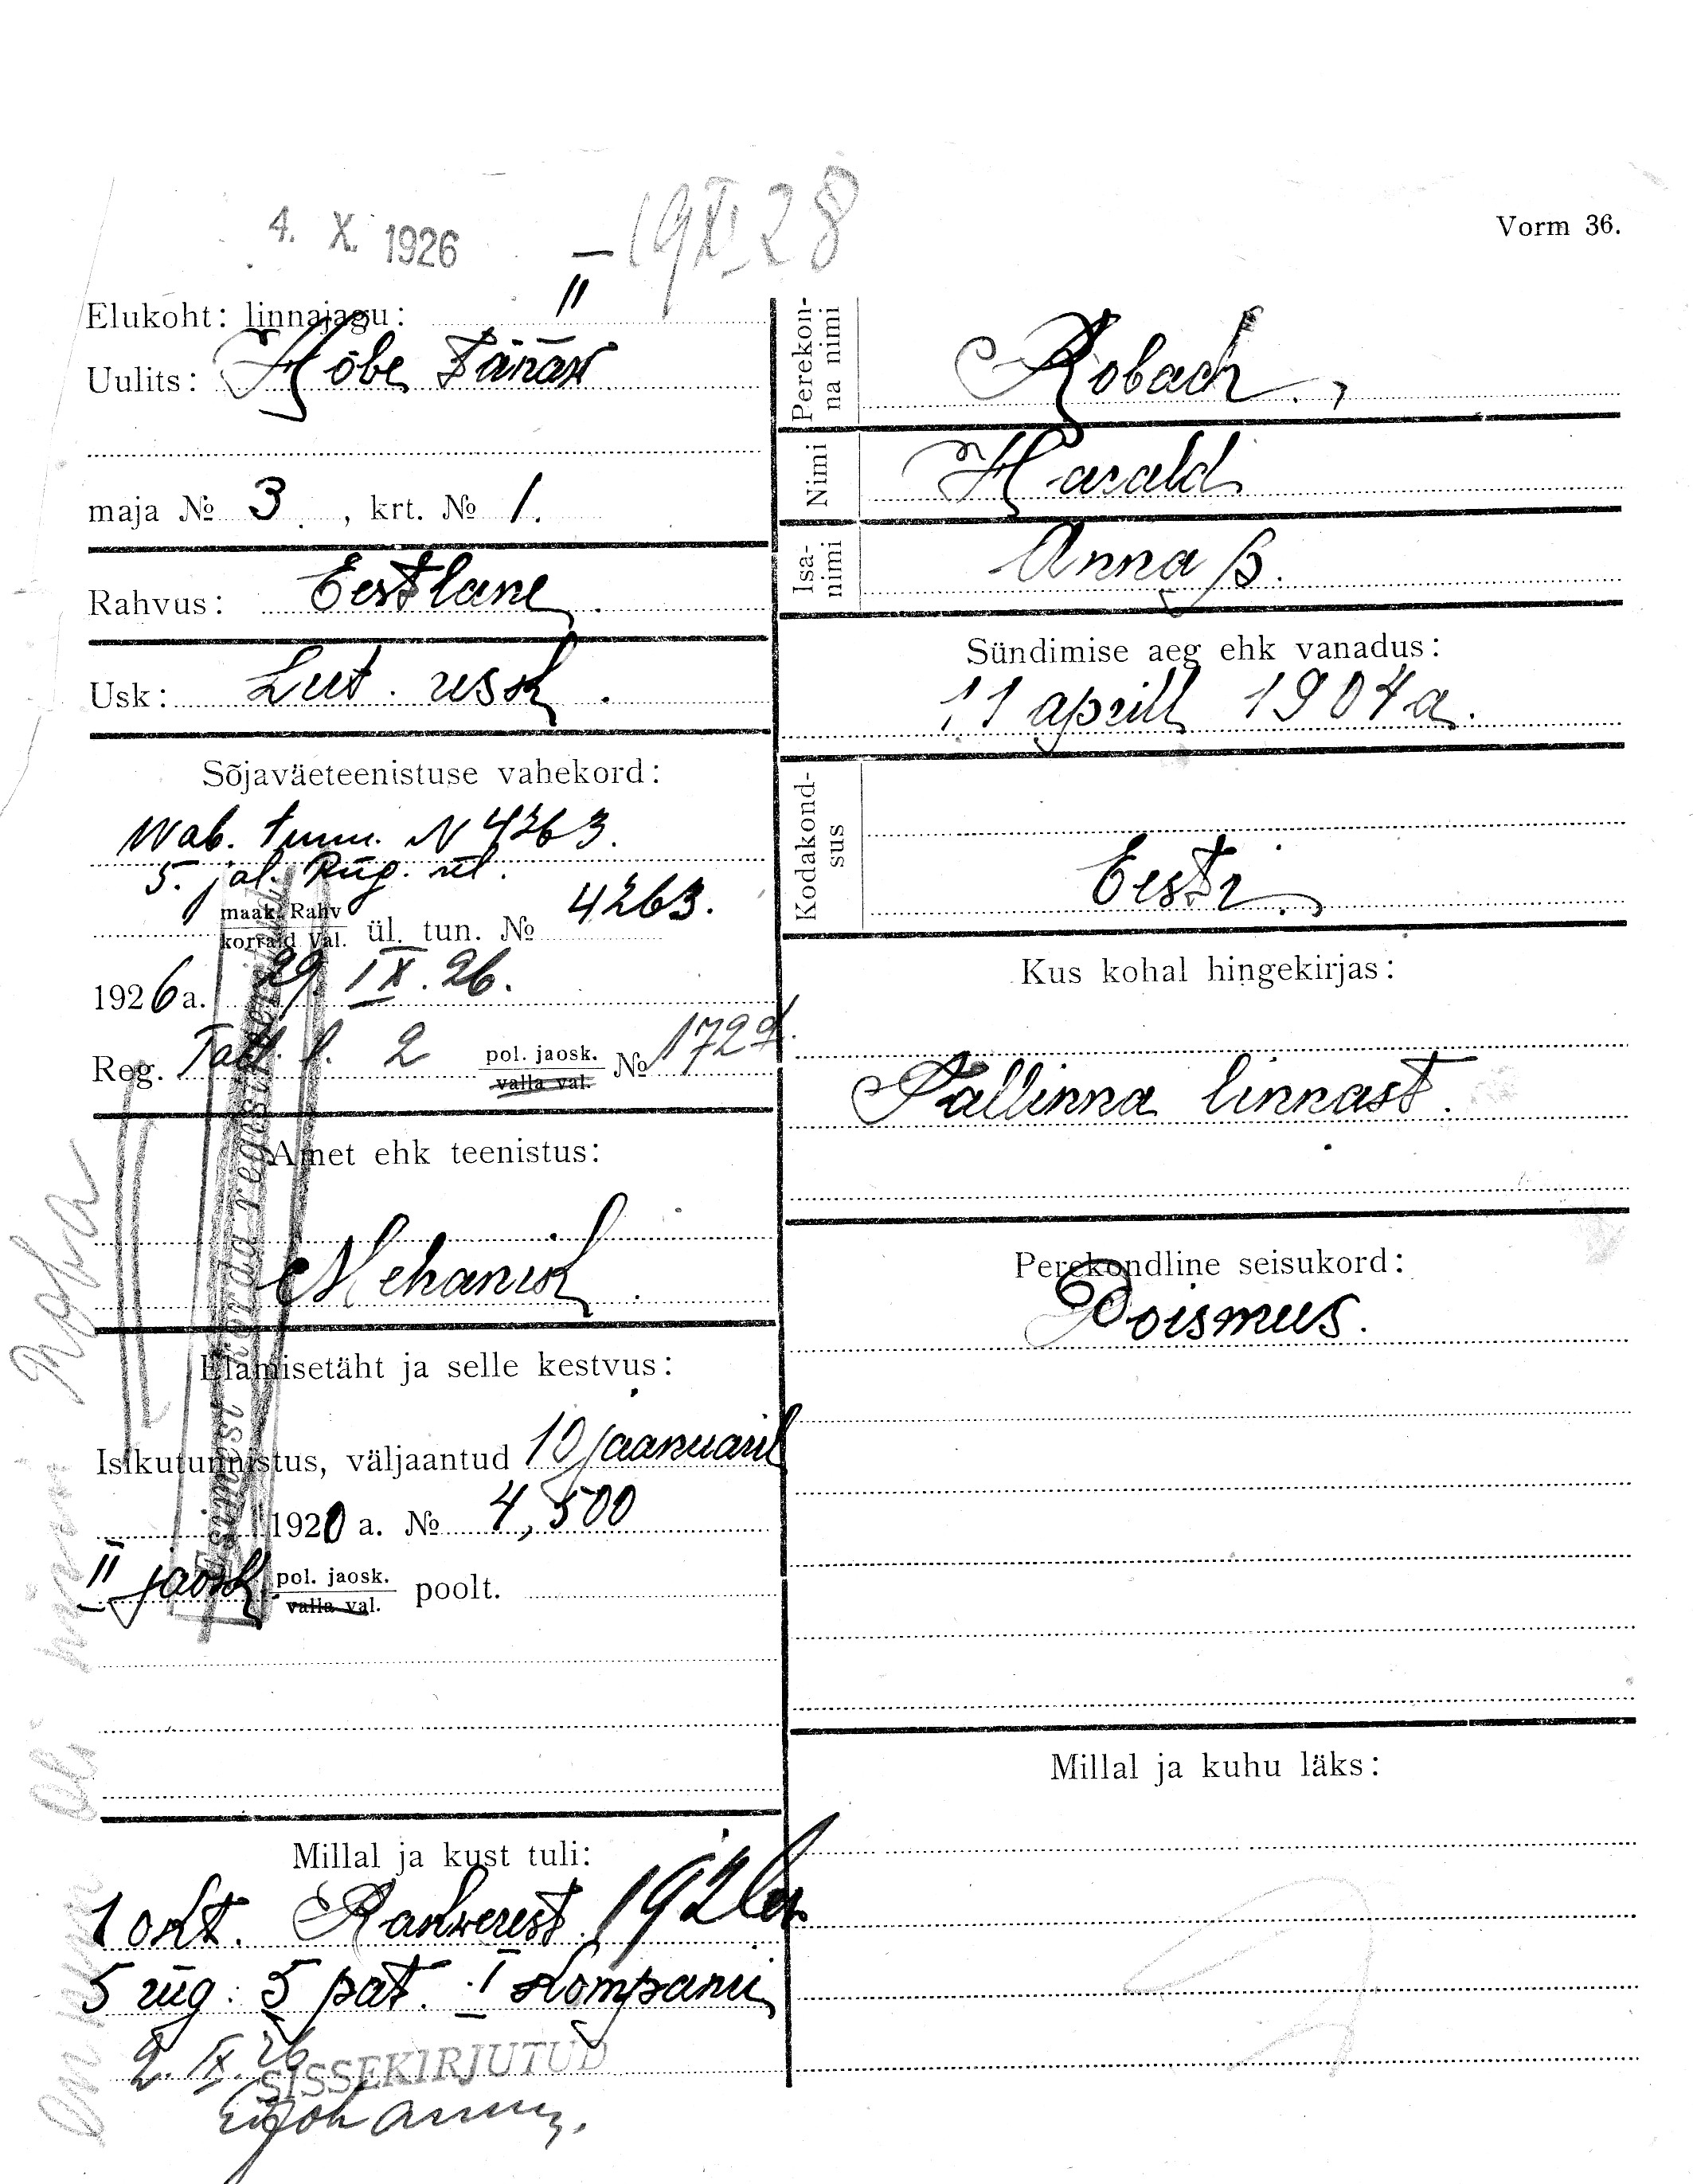 4. X. 1926
19 XI 28
Vorm 36.
Elukoht: linnajagu: II
Uulits: Hõbe Tänaw
maja № 3., krt. № 1.
Rahvus: Eestlane.
Usk: Lut. usk.
Sõjaväeteenistuse vahekord:
Wab. tunn. N 4263.
5. jal. Rüg. ül.
maak. Rahv
korrald Val. ül. tun. № 4263.
1926 a. 29. IX. 26.
Reg. Tall. l. 2 pol. jaosk. № 1729.
valla val.
Esimest korda registreeritud
Amet ehk teenistus:
Mehanik.
Elamisetäht ja selle kestvus:
Isikutunnistus, väljaantud 10 jaanuaril
1920 a. № 4,500
II jaosk. pol. jaosk. poolt.
valla val.
Millal ja kust tuli:
1 okt. Rakwerest 1926 a.
5 rüg. 5 pat. I kompanii
2. IX. 26
SISSEKIRJUTUD
Perekon-
na nimi
Robach.,
Nimi
Harald
Isa-
nimi
Anna p.
Sündimise aeg ehk vanadus:
11 aprill 1904 a.
Kodakond-
sus
Eesti.
Kus kohal hingekirjas:
Tallinna linnast.
Perekondline seisukord:
Poismees.
Millal ja kuhu läks: